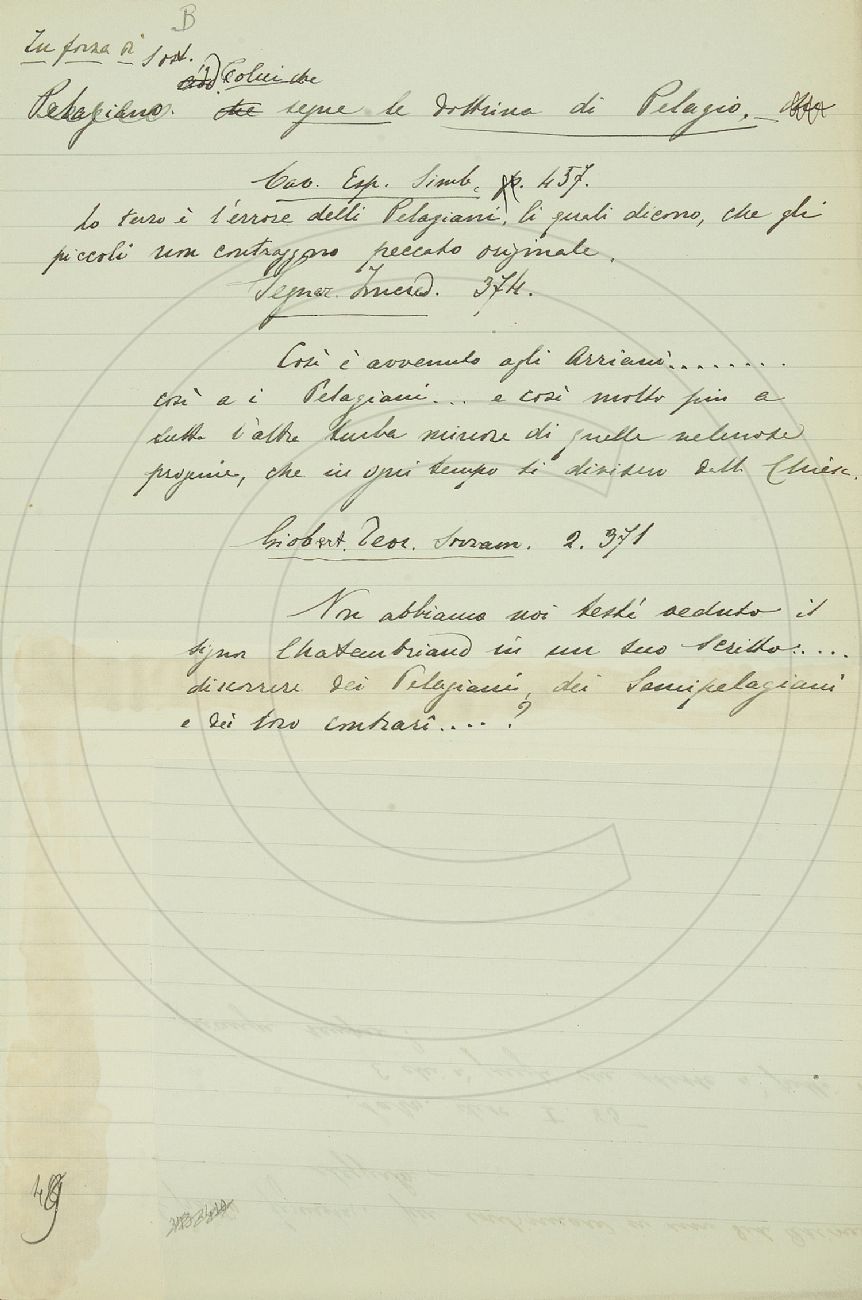 B
In forza di Sost.
Colui che
Pelagiano. che segue le dottrina di Pelagio. _
Cav. Esp. Simb. p. 437.
Lo terzo è l'errore delli Pelagiani, li quali dicono, che gli
piccoli non contraggono peccato originale.
Segner. Incred. 374.
Così è avvenuto agli Arriani........
così a i Pelagiani... e così molto più a
tutta l'altra turba minore di quelle velenose
progenie, che in ogni tempo si divisero dall. Chiesa.
Giobert. Teor. Sovran. 2. 371
Non abbiamo noi testé veduto il
signor Chateaubriand in un suo scritto.....
discorrere dei Pelagiani, dei Semipelagiani
e dei loro contrari....?